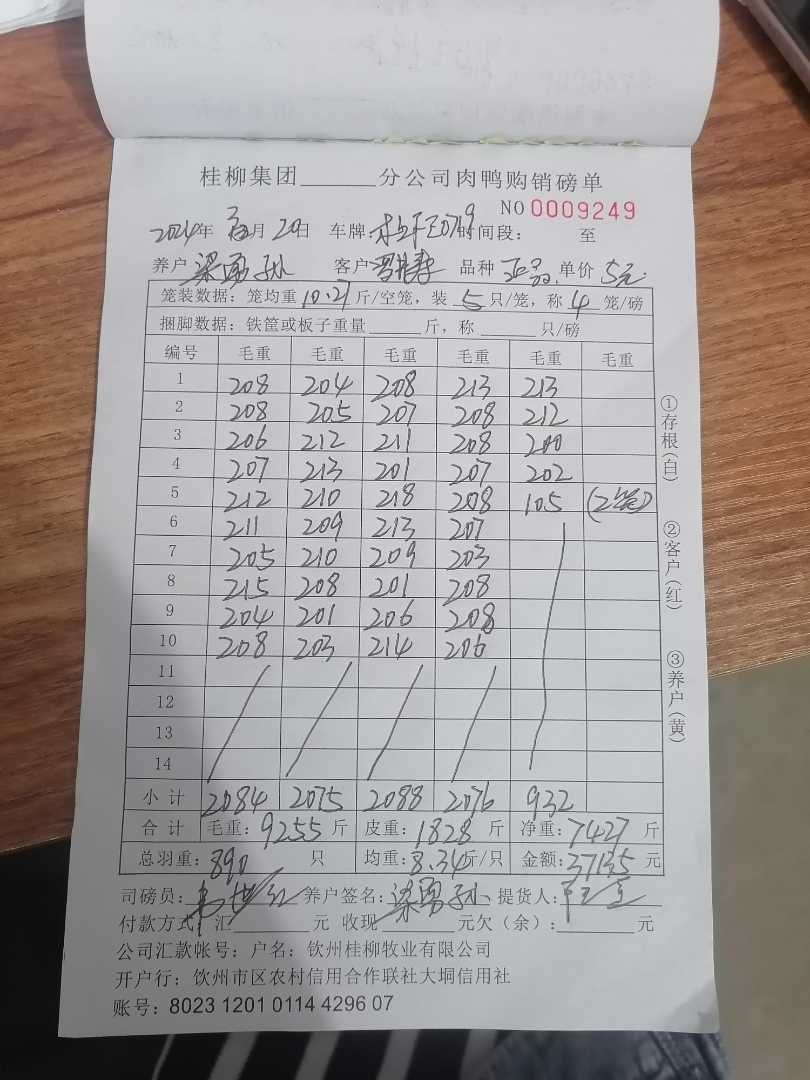 桂柳集团______分公司肉鸭购销磅单
NO 0009249
2024年 月20日 车牌: 时间段: 至
养户 梁勇孙 客户 品种 单价 5元
笼装数据:笼均重10.27斤/空笼,装 5 只/笼,称 4 笼/磅
捆脚数据:铁筐或板子重量______斤,称______只/磅
编号 毛重 毛重 毛重 毛重 毛重 毛重
1 208 204 208 213 213
2 208 205 207 208 212
3 206 212 211 208 200
4 207 213 201 207 202
5 212 210 218 208 105 (2笼)
6 211 209 213 207
7 205 210 209 203
8 215 208 201 208
9 204 201 206 208
10 208 203 214 206
11
12
13
14
小计 2084 2075 2088 2076 932
合计 毛重:9255斤 皮重:1828斤 净重:7427斤
总羽重:890 只 均重:8.34斤/只 金额:37135元
司磅员: 养户签名:梁勇孙 提货人:
付款方式:汇______元 收现______元欠(余):______元
公司汇款帐号:户名:钦州桂柳牧业有限公司
开户行:钦州市区农村信用合作联社大垌信用社
账号:8023 1201 0114 4296 07
①存根(白)
②客户(红)
③养户(黄)